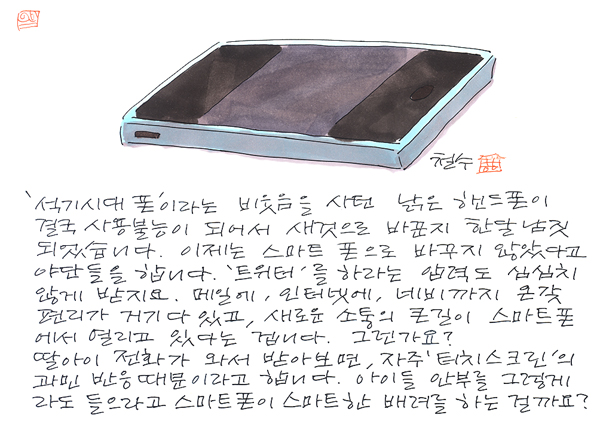 철수
'석기시대 폰'이라는 비웃음을 사던 낡은 핸드폰이
결국 사용불능이 되어서 새것으로 바꾼지 한달 남짓
되었습니다. 이제는 스마트 폰으로 바꾸지 않았다고
야단들을 합니다. '트위터'를 하라는 압력도 심심치
않게 받지요. 메일에, 인터넷에, 네비까지 온갖
편리가 거기 다 있고, 새로운 소통의 큰길이 스마트폰
에서 열리고 있다는 겁니다. 그런가요?
딸아이 전화가 와서 받아보면, 자주 '터치스크린'의
과민 반응 때문이라고 합니다. 아이들 안부를 그렇게
라도 들으라고 스마트폰이 스마트한 배려를 하는 걸까요?